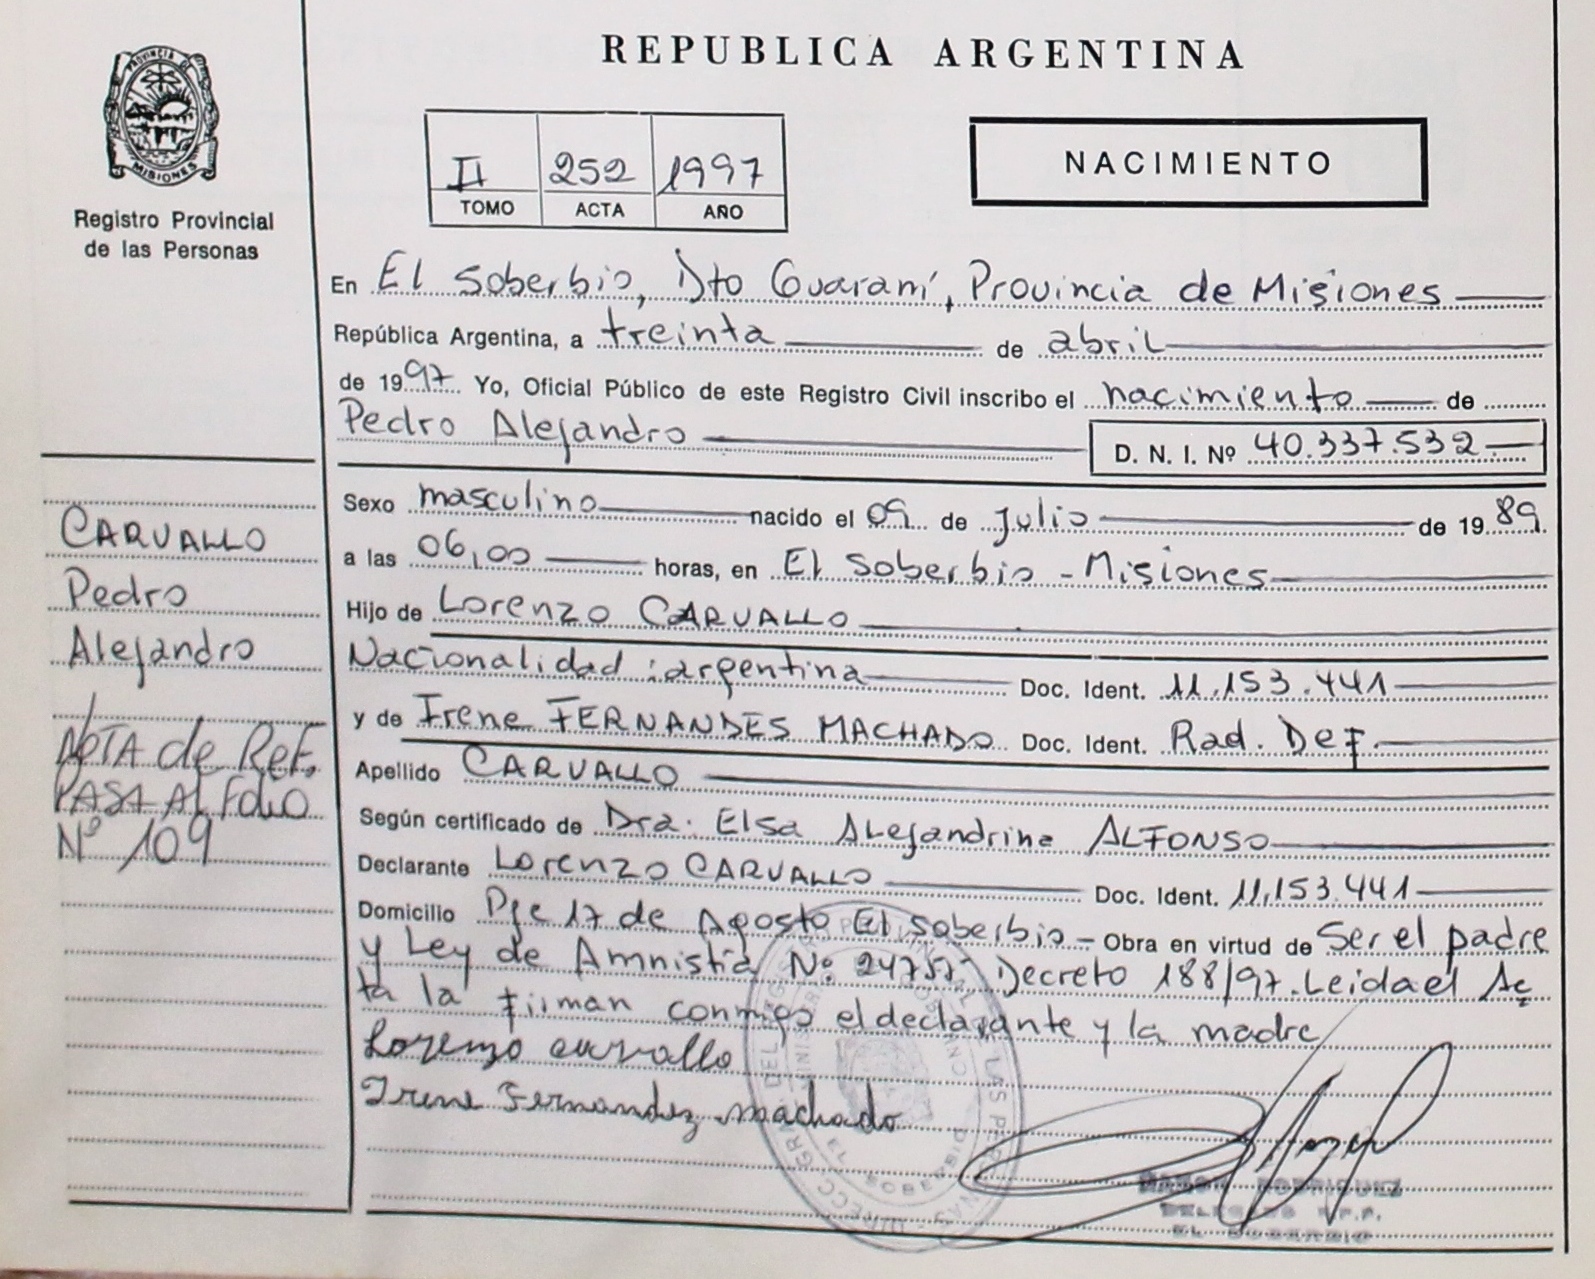 REPUBLICA ARGENTINA
PROVINCIA DE
MISIONES
Registro Provincial
de las Personas
II 252 1997
TOMO ACTA AÑO
NACIMIENTO
En El Soberbio, Dto Guaraní, Provincia de Misiones
República Argentina, a treinta de abril
de 1997 Yo, Oficial Público de este Registro Civil inscribo el nacimiento de
Pedro Alejandro
D. N. I. Nº 40.337.532.-
Sexo masculino nacido el 09 de Julio de 1989
a las 06,00 horas, en El Soberbio - Misiones
Hijo de Lorenzo CARVALLO
Nacionalidad : argentina Doc. Ident. 11.153.441
y de Irene FERNANDES MACHADO Doc. Ident. Rad. Def.
Apellido CARVALLO
Según certificado de Dra. Elsa Alejandrina ALFONSO
Declarante Lorenzo CARVALLO Doc. Ident. 11.153.441
Domicilio Pje 17 de Agosto El Soberbio - Obra en virtud de Ser el padre
y Ley de Amnistia Nº 24755 Decreto 188/97. Leida el Ac
ta la firman conmigo el declarante y la madre
Lorenzo carvallo
Irene Fernandez machado
CARVALLO
Pedro
Alejandro
NOTA de Ref.
PASA AL FOLIO
Nº 109
EL SOBERBIO
RAMON RODRIGUEZ
DELEGADO R.P.P.
EL SOBERBIO